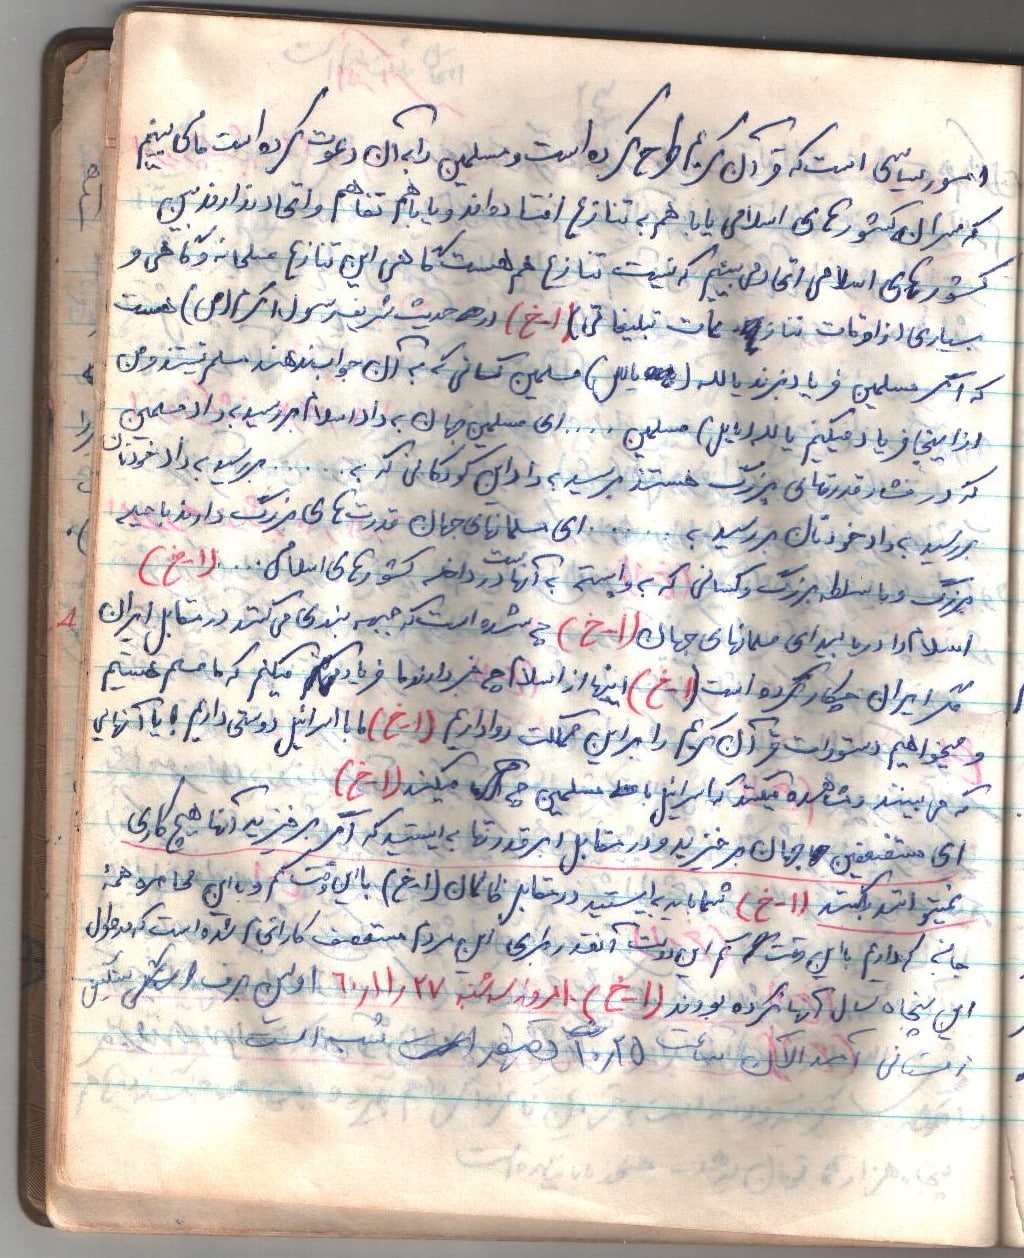 امور سیاسی است که قرآن کریم طرح کرده است و مسلمین را به آن دعوت کرده است ما می بینیم
که سران کشورهای اسلامی یا با هم به تنازع افتاده اند و یا با هم تفاهم و اتحاد ندارند بین
کشورهای اسلامی اتحاد نمی بینیم که نیست تنازع هم هست گاهی این تنازع مسلحانه و گاهی و
بسیاری از اوقات تنازعات تبلیغاتی (ا-خ) در حدیث شریف رسول اکرم (ص) هست
که اگر مسلمین فریاد بزنند یا للمسلمین کسانی که به آن جواب ندهند مسلم نیستند و من
از اینجا فریاد میکنم یا للمسلمین .... ای مسلمین جهان به داد اسلام برسید به داد مسلمین
که در فشار قدرتهای بزرگ هستند برسید به داد این کودکانی که به ...... برسید به داد خودتان
برسید به داد خودتان برسید به ...... ای مسلمانهای جهان قدرت های بزرگ دارند با حیله
بزرگ و با سلطه بزرگ و کسانی که وابسته به آنها است در داخل کشورهای اسلامی .... (ا-خ)
اسلام را دریابید ای مسلمانهای جهان (ا-خ) چه شده است که جبهه بندی می کنند در مقابل ایران
مگر ایران چکار کرده است (ا-خ) اینها از اسلام چه خبر دارند ما فریاد میکنیم که ما مسلم هستیم
و میخواهیم دستورات قرآن کریم را در این مملکت روا داریم (ا-خ) ما با اسرائیل دوستی داریم! یا آنهایی
که می بینند و مشاهده میکنند که اسرائیل با مسلمین چه میکند (ا-خ)
ای مستضعفین جهان برخیزید و در مقابل ابرقدرتها بایستید که اگر برخیزید آنها هیچ کاری
نمیتوانند بکنند (ا-خ) شما باید بایستید در مقابل ظالمان (ا-خ) با این وقت کم و با این محاصره همه
جانبه که داریم با این وقت کم این دولت آنقدر برای این مردم مستضعف کار انجام داده است که در طول
این پنجاه سال آنها نکرده بودند (ا-خ) امروز سه شنبه ۶۰٫۱۱٫۲۷ اولین برف سنگین
زمستانی آمد الآن ساعت ۱۰٫۲۵ دقیقه شب است